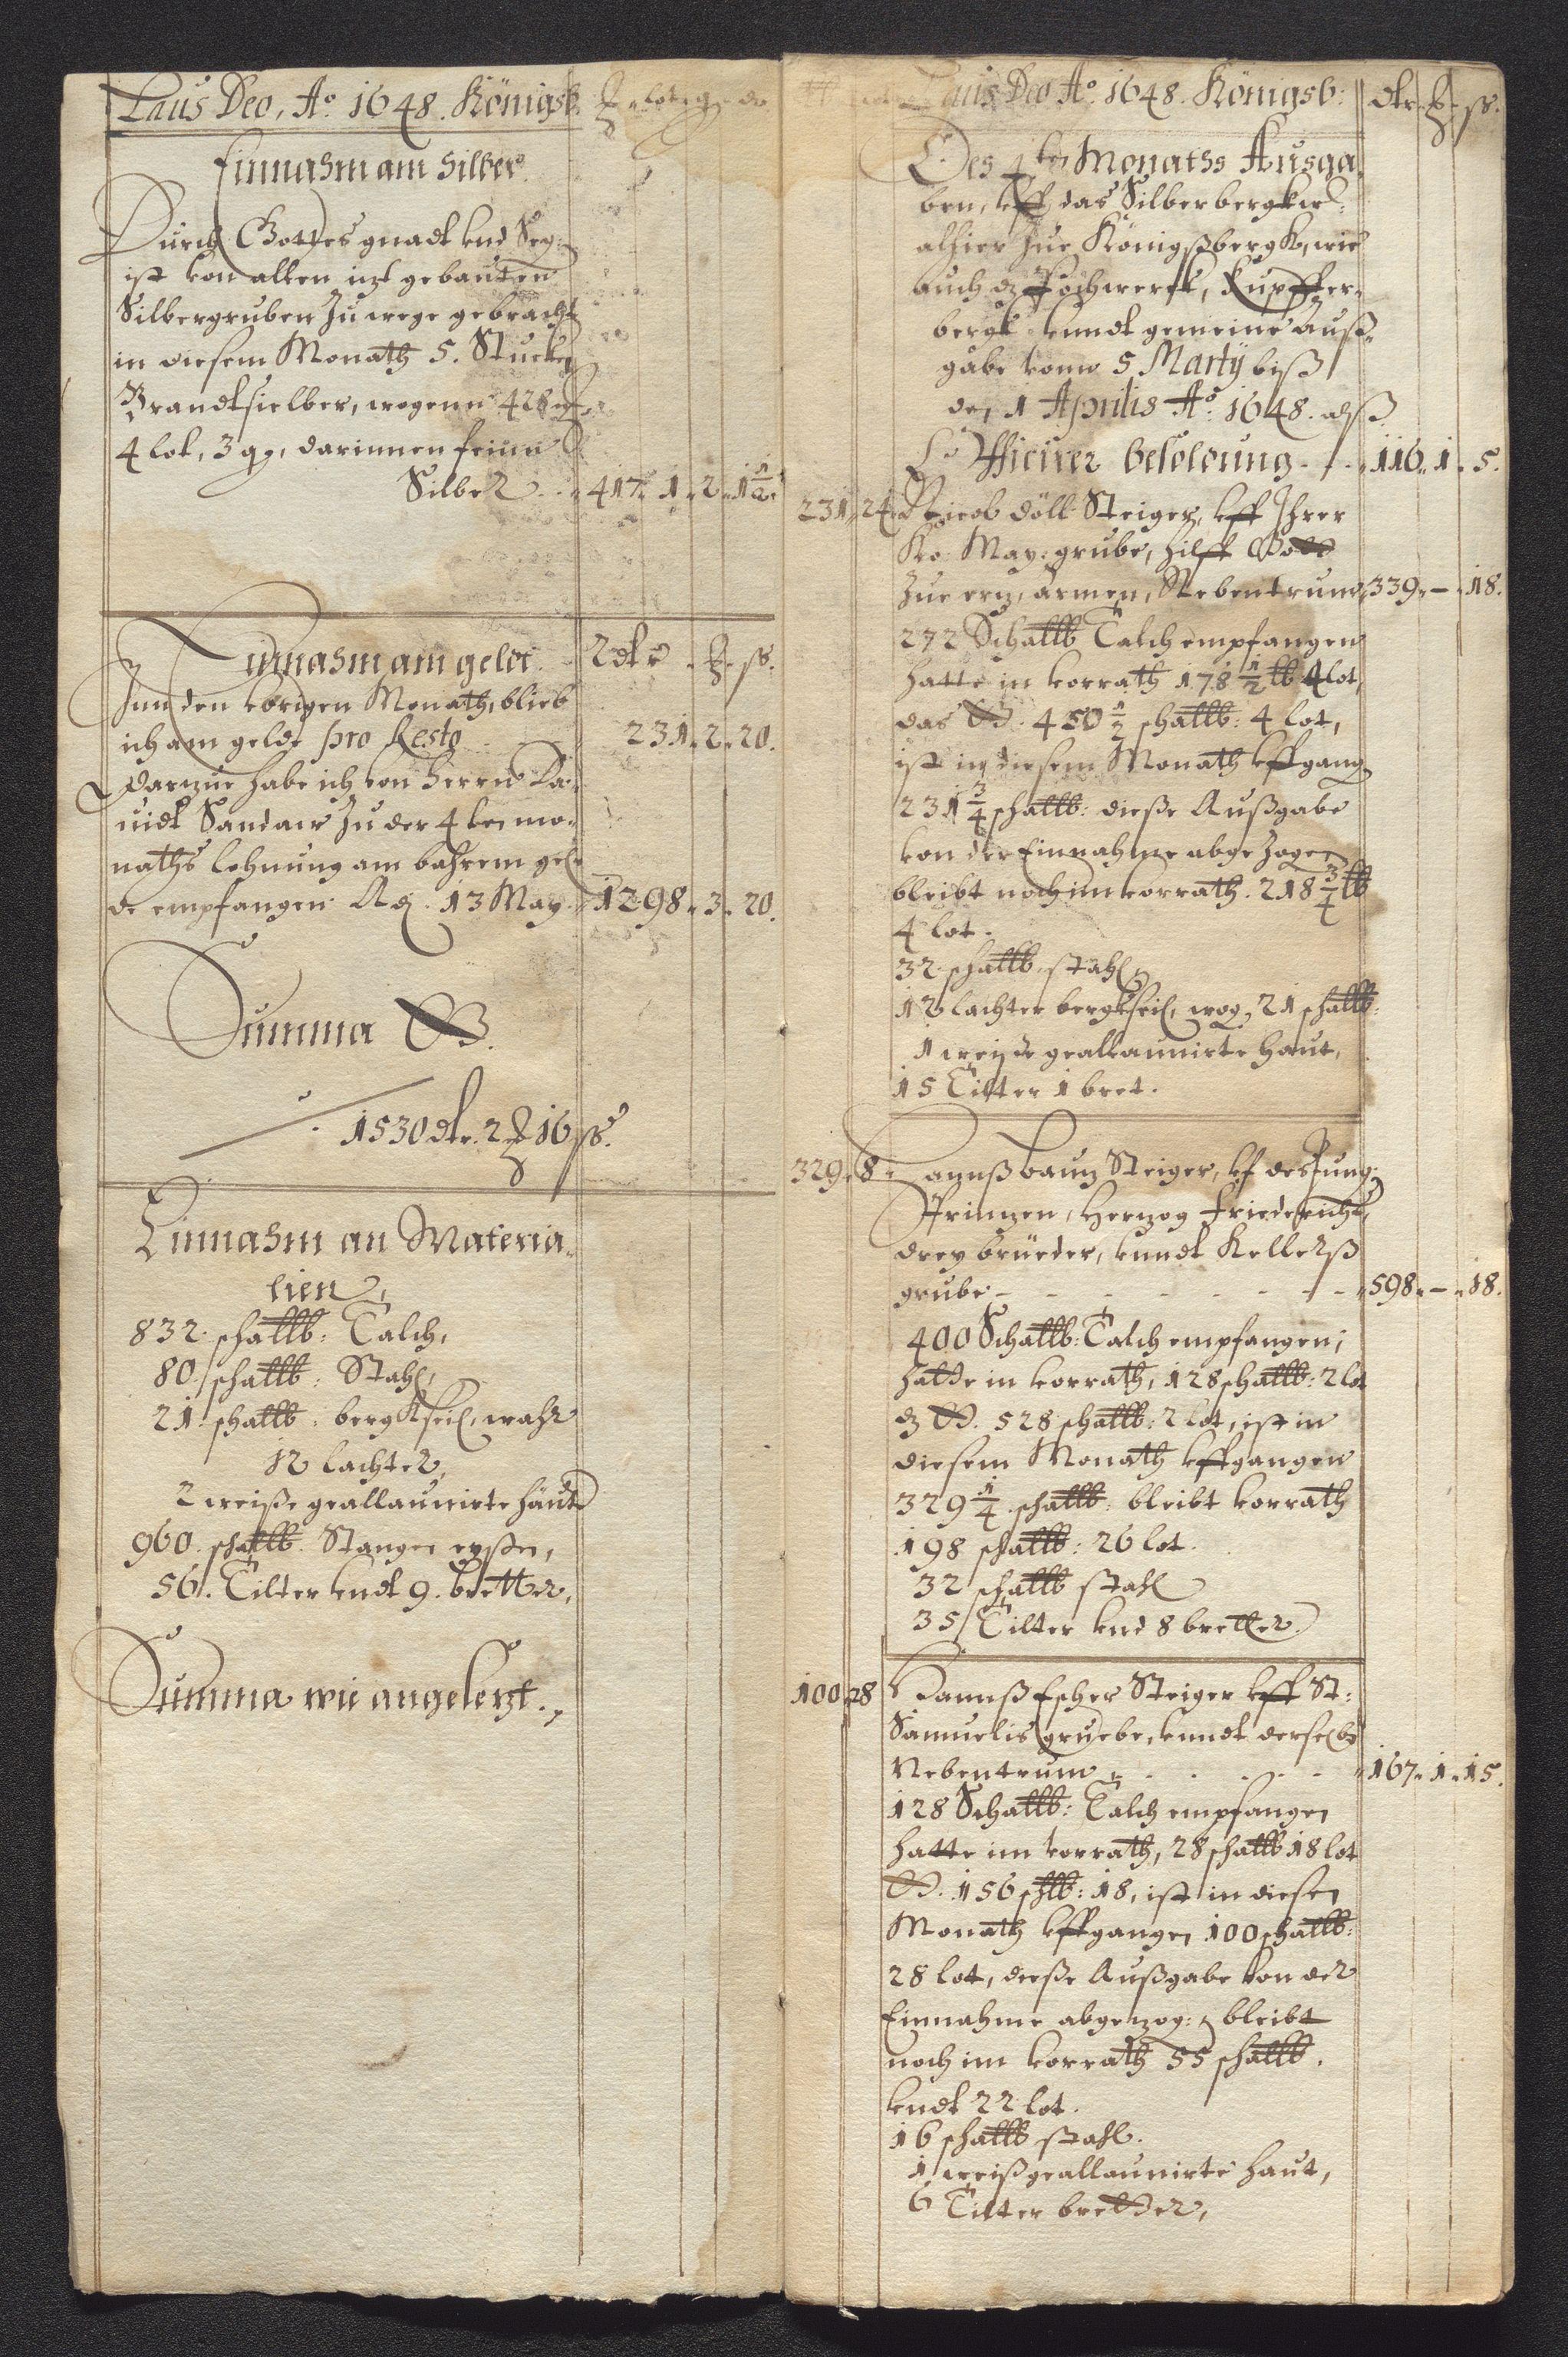 Laus Deo, Ao. 1648. Königsb.
lot q
Einnahm am Silber
Durch Gottes gnadt vnd Seg:
ist von allen izt gebauten
Silbergruben Zu wege gebracht
in diesem Monath 5. Stucken
Brandtsielber, wogenn 428
4 lot, 3 q, darinnen feinn
Silber 417 1 2 1½
Einnahm am geldt Rdtr ß.
Inn den vbrigen Monath, blieb
ich am gelde pro Resto 231 2 20.
Darzue habe ich von Herrn Da-
uidt Sandaw Zu der 4ten mo-
naths lohnung am bahrem gel-
de empfangen Adj. 13 May 1298 3 20.
Summa
1530 dtr. 2 16 ß.
Einnahm an Materia-
lien,
832. schallb: Talch,
80 schallb: Stahl,
21 schallb: bergkseil, wahr
12 lachter,
2 weiße geallaunirte häut
960. schallb. Stangen eyßen,
56. Tilter vndt 9. bretter,
Summa wie angesetzt.
Laus Deo Ao. 1648. Königsb: dtr ß.
Des 4ten Monaths Ausga
ben, vff das Silberbergkw:
alhier zue Königßbergk, wie
auch dz Pochwerk, Kupffer-
bergk vnndt gemeine Auß-
gabe vonn 5 Martij biß
den 1 Aprilis Ao: 1648. alß
Officirer besoldung 116 1 5.
231 24 Jacob döll Steiger, vff Ihrer
Ko: May: grube, hilff Gott
Zue erz, armen, Nebentrumb 339 – 18.
272 Schallb Talch empfangen
hatte in vorrath 178½ lb 4 lot,
das 450½ schallb: 4 lot,
ist in diesem Monath vffgang
231¾ schallb: dieße Außgabe
von der Einnahme abgezogen
bleibt noch im vorrath. 218¾ lb
4 lot.
32 schallb stahl
12 lachter bergkseil, wog, 21 schallb:
1 weiße geallaunirte haut,
15 Tilter 1 bret.
329 8 Hannß baur Steiger, vf des Jung:
Prinzen, Herzog Friederichs,
drey brüder, vnndt Kellerß
grube 598 – 18.
400 Schallb: Talch empfangen,
hatte in vorrath, 128 schallb: 2 lot
dz 528 schallb: 2 lot, ist in
diesem Monath vffgangen
329¼ schallb: bleibt vorrath
198 schallb: 26 lot.
32 schallb stahl
35 Tilter vnd 8 bretter
100 28 Hannß Escher Steiger vff St:
Samuelis gruebe, vnndt derselbe
Nebentrum 167 1 15.
128 Schallb: Talch empfangen
hatte im vorrath, 28 schallb 18 lot
156 schlb: 18, ist in diesen
Monath vffgangen 100 schallb:
28 lot, dieße Außgabe von der
Einnahme abgezog: bleibt
noch im vorrath 55 schallb.
vndt 22 lot.
16 schallb stahl.
1 weißgeallaunirte haut,
6 Tilter bretter,